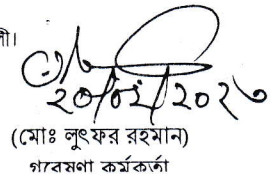 ২০/০২/২০২৩
(মোঃ লুৎফর রহমান)
গবেষণা কর্মকর্তা